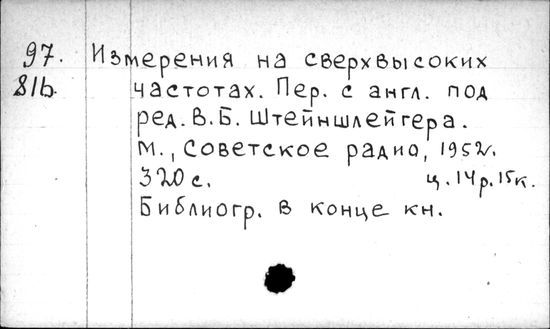 97. Измерения на сверхвысоких
81b. частотах. Пер. с англ. под
ред. В.Б. Штейншлейгера.
М., Советское радио, 1952.
320 с. ц. 14 р. 15 к.
Библиогр. в конце кн.